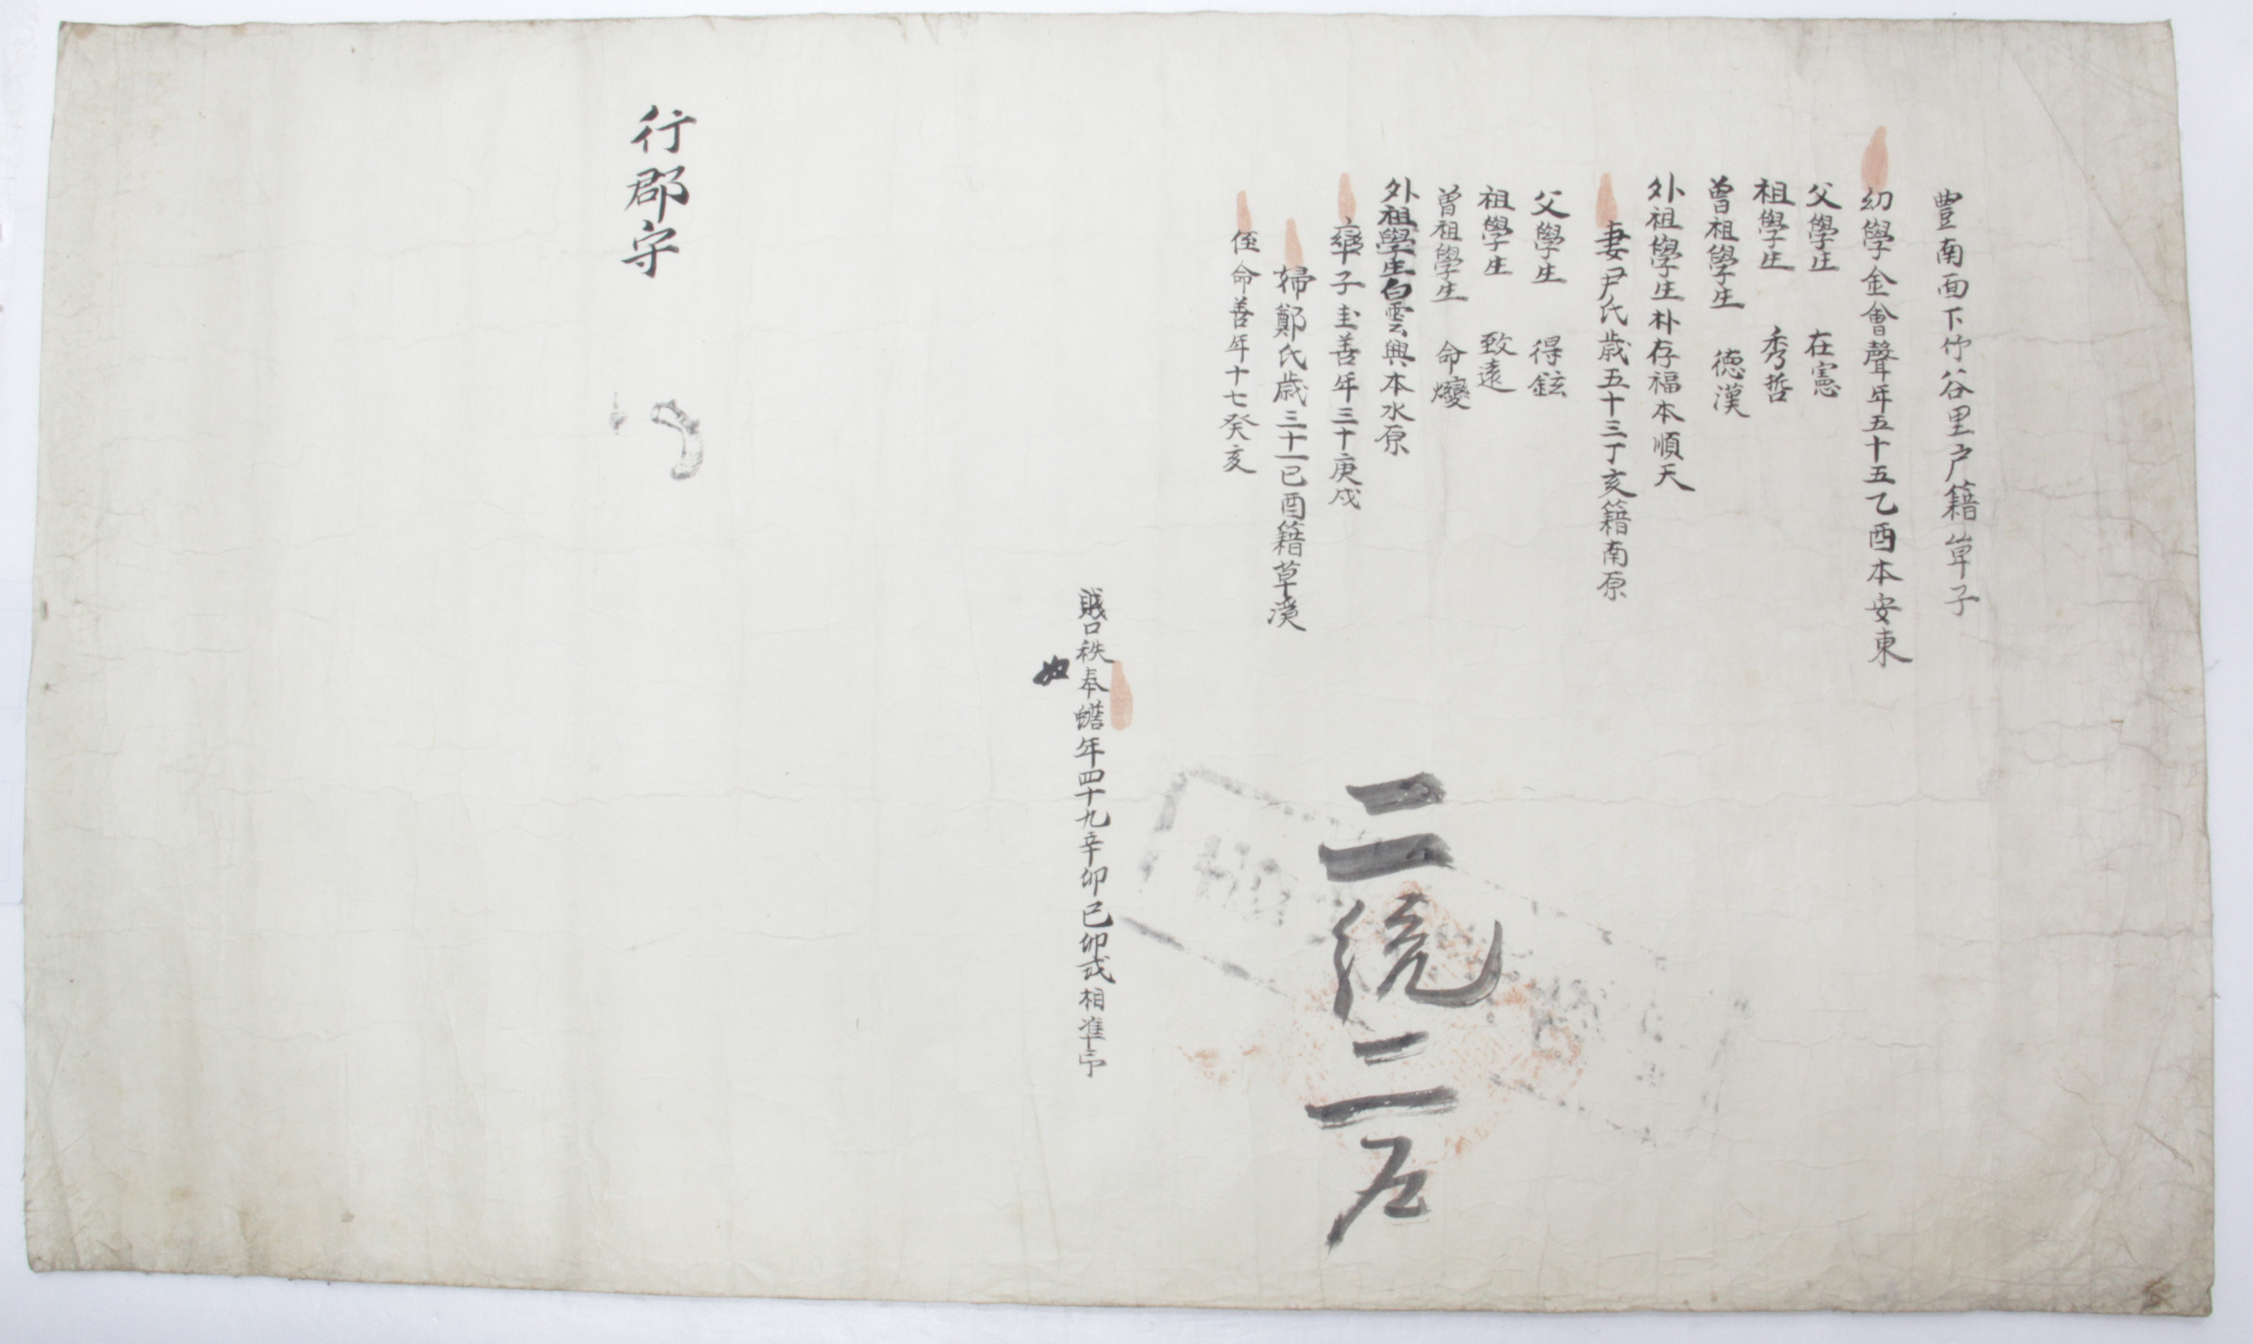 豊南面下竹谷里户籍单子
幼學金會聲年五十五乙酉本安東
父學生 在憲
祖學生 秀哲
曾祖學生 德漢
外祖學生朴存福本順天
妻尹氏歲五十三丁亥籍南原
父學生 得鉉
祖學生 致遠
曾祖學生 命燮
外祖學生白雲興本水原
率子圭善年三十庚戌
婦鄭氏歲三十一己酉籍草溪
侄命善年十七癸亥
賤口秩奉蟾年四十九辛卯己卯式相準印
奴
二統二戶
行郡守